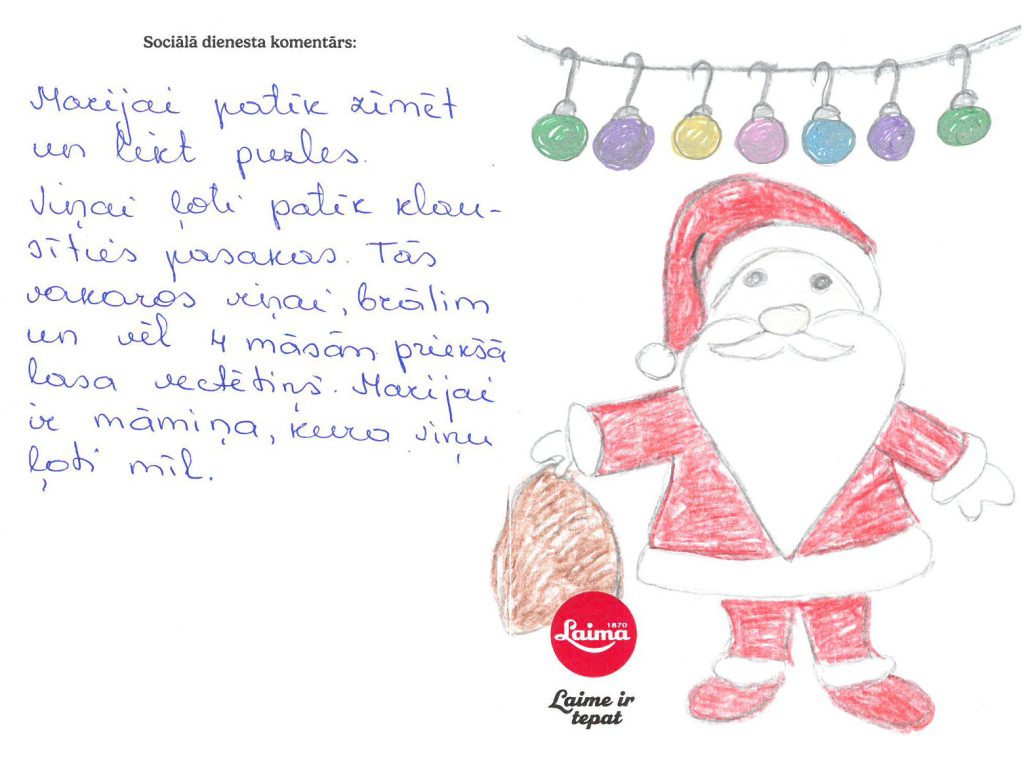 Sociālā dienesta komentārs:
Marijai patīk zīmēt
un likt puzles.
Viņai ļoti patīk klau-
sīties pasakas. Tās
vakaros viņai, brālim
un vēl 4 māsām priekšā
lasa vectētiņš. Marijai
ir māmiņa, kura viņu
ļoti mīl.
Laima
1870
Laime ir
tepat